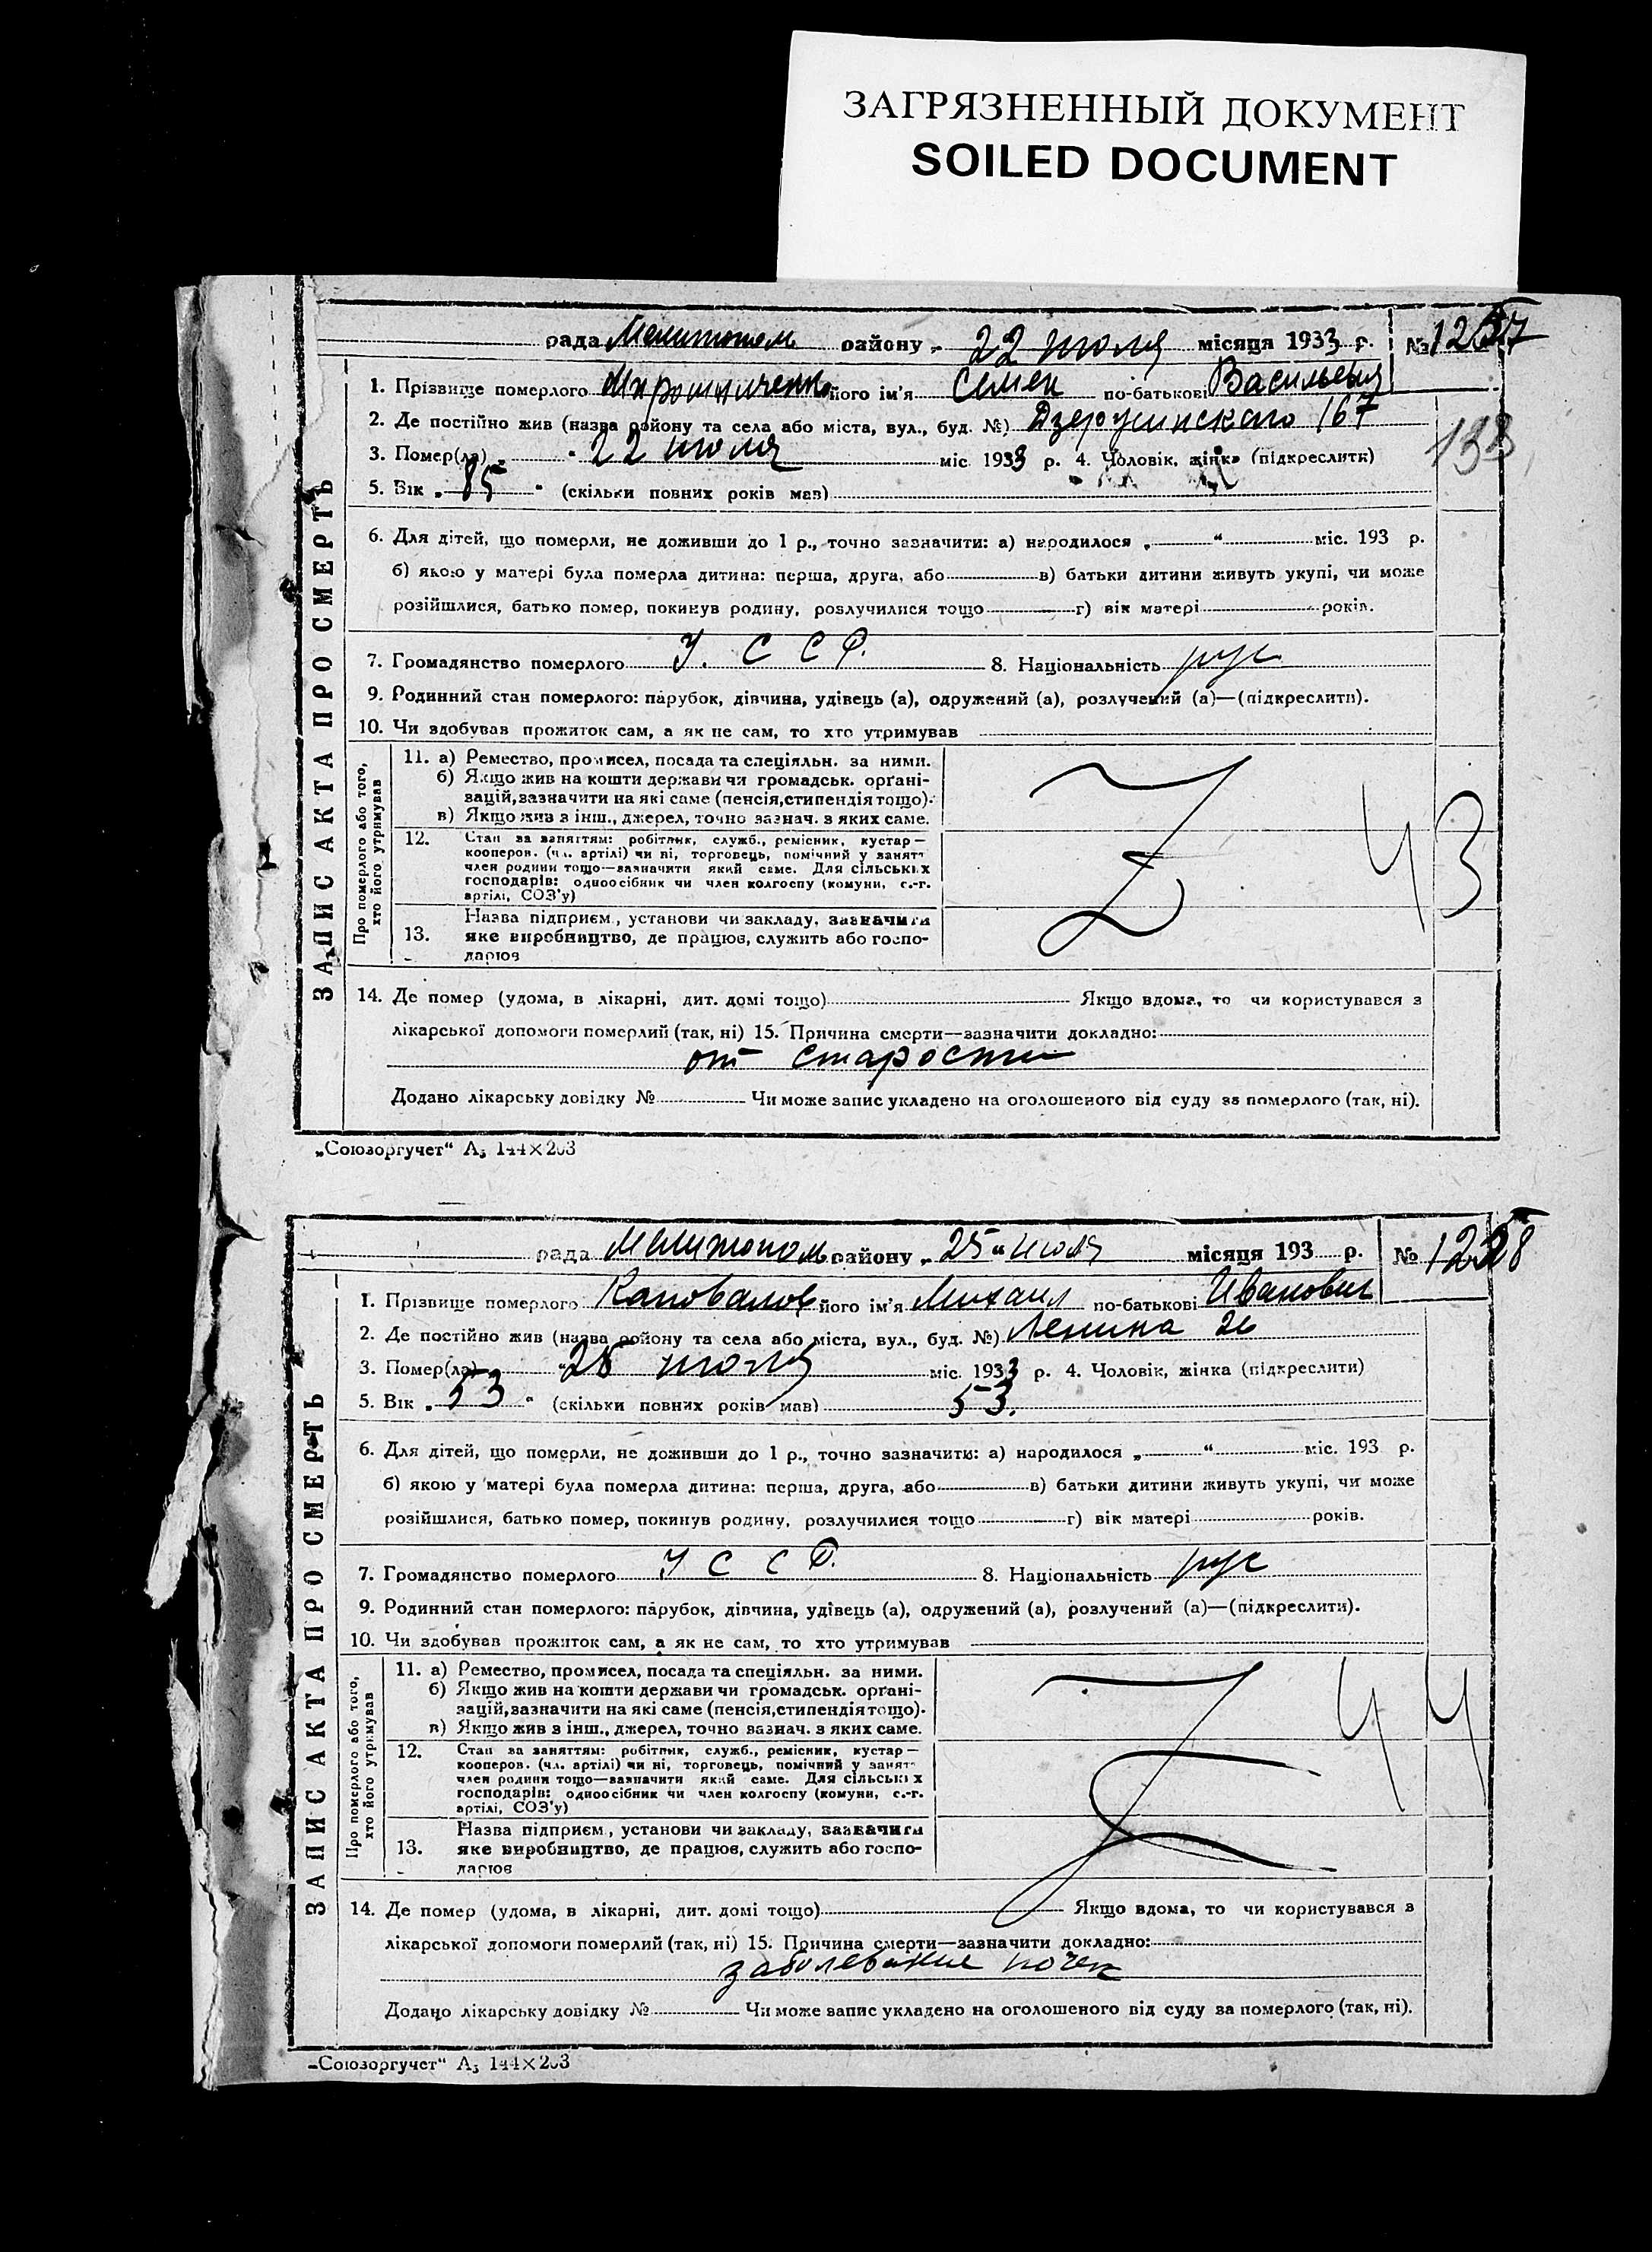 ЗАГРЯЗНЕННЫЙ ДОКУМЕНТ
SOILED DOCUMENT
рада Мелитополь району „ 22 июля місяця 1933 р. №
1. Прізвище померлого Мирошниченко його ім'я Семен по-батькові Васильевич
2. Де постійно жив (назва району та села або міста, вул., буд. №) Дзержинскаго 167
133
3. Помер(ла) „ “ 22 июля міс. 1933 р. 4. Чоловік, жінка (підкреслити)
5. Вік „ 85 “ (скільки повних років мав)
ЗАПИС АКТА ПРО СМЕРТЬ
6. Для дітей, що померли, не доживши до 1 р., точно зазначити: а) народилося „ “ міс. 193 р.
б) якою у матері була померла дитина: перша, друга, або в) батьки дитини живуть укупі, чи може
розійшлися, батько помер, покинув родину, розлучилися тощо г) вік матері років.
7. Громадянство померлого У. С С Р. 8. Національність рус
9. Родинний стан померлого: парубок, дівчина, удівець (а), одружений (а), розлучений (а)—(підкреслити).
10. Чи здобував прожиток сам, а як не сам, то хто утримував
Про померлого або того,
хто його утримував
11. а) Ремество, промисел, посада та спеціяльн. за ними.
б) Якщо жив на кошти держави чи громадськ. орґані-
зацій, зазначити на які саме (пенсія, стипендія тощо).
в) Якщо жив з інш., джерел, точно зазнач. з яких саме.
43
12. Стан за заняттям: робітник, служб., ремісник, кустар—
кооперов. (чл. артілі) чи ні, торговець, помічний у занятт
член родини тощо—зазначити який саме. Для сільських
господарів: одноосібник чи член колгоспу (комуни, с.-г.
артілі, СОЗ'у)
13. Назва підприєм., установи чи закладу, зазначити
яке виробництво, де працює, служить або госпо-
дарює
14. Де помер (удома, в лікарні, дит. домі тощо) Якщо вдома, то чи користувався з
лікарської допомоги померлий (так, ні) 15. Причина смерти—зазначити докладно:
от старости
Додано лікарську довідку № Чи може запис укладено на оголошеного від суду за померлого (так, ні).
„Союзоргучет“ А₅ 144×203
рада Мелитополь району „ 25 “ июля місяця 193 р. №
1. Прізвище померлого Каповалов його ім'я Михаил по-батькові Иванович
2. Де постійно жив (назва району та села або міста, вул., буд. №) Ленина 26
3. Помер(ла) “ 25 июля міс. 1933 р. 4. Чоловік, жінка (підкреслити)
5. Вік „ 53 “ (скільки повних років мав) 53.
ЗАПИС АКТА ПРО СМЕРТЬ
6. Для дітей, що померли, не доживши до 1 р., точно зазначити: а) народилося „ “ міс. 193 р.
б) якою у матері була померла дитина: перша, друга, або в) батьки дитини живуть укупі, чи може
розійшлися, батько помер, покинув родину, розлучилися тощо г) вік матері років.
7. Громадянство померлого У С С Р. 8. Національність рус
9. Родинний стан померлого: парубок, дівчина, удівець (а), одружений (а), розлучений (а)—(підкреслити).
10. Чи здобував прожиток сам, а як не сам, то хто утримував
Про померлого або того,
хто його утримував
11. а) Ремество, промисел, посада та спеціяльн. за ними.
б) Якщо жив на кошти держави чи громадськ. орґані-
зацій, зазначити на які саме (пенсія, стипендія тощо).
в) Якщо жив з інш., джерел, точно зазнач. з яких саме.
44
12. Стан за заняттям: робітник, служб., ремісник, кустар—
кооперов. (чл. артілі) чи ні, торговець, помічний у занятт
член родини тощо—зазначити який саме. Для сільських
господарів: одноосібник чи член колгоспу (комуни, с.-г.
артілі, СОЗ'у)
13. Назва підприєм., установи чи закладу, зазначити
яке виробництво, де працює, служить або госпо-
дарює
14. Де помер (удома, в лікарні, дит. домі тощо) Якщо вдома, то чи користувався з
лікарської допомоги померлий (так, ні) 15. Причина смерти—зазначити докладно:
заболевание почек
Додано лікарську довідку № Чи може запис укладено на оголошеного від суду за померлого (так, ні).
„Союзоргучет“ А₅ 144×203